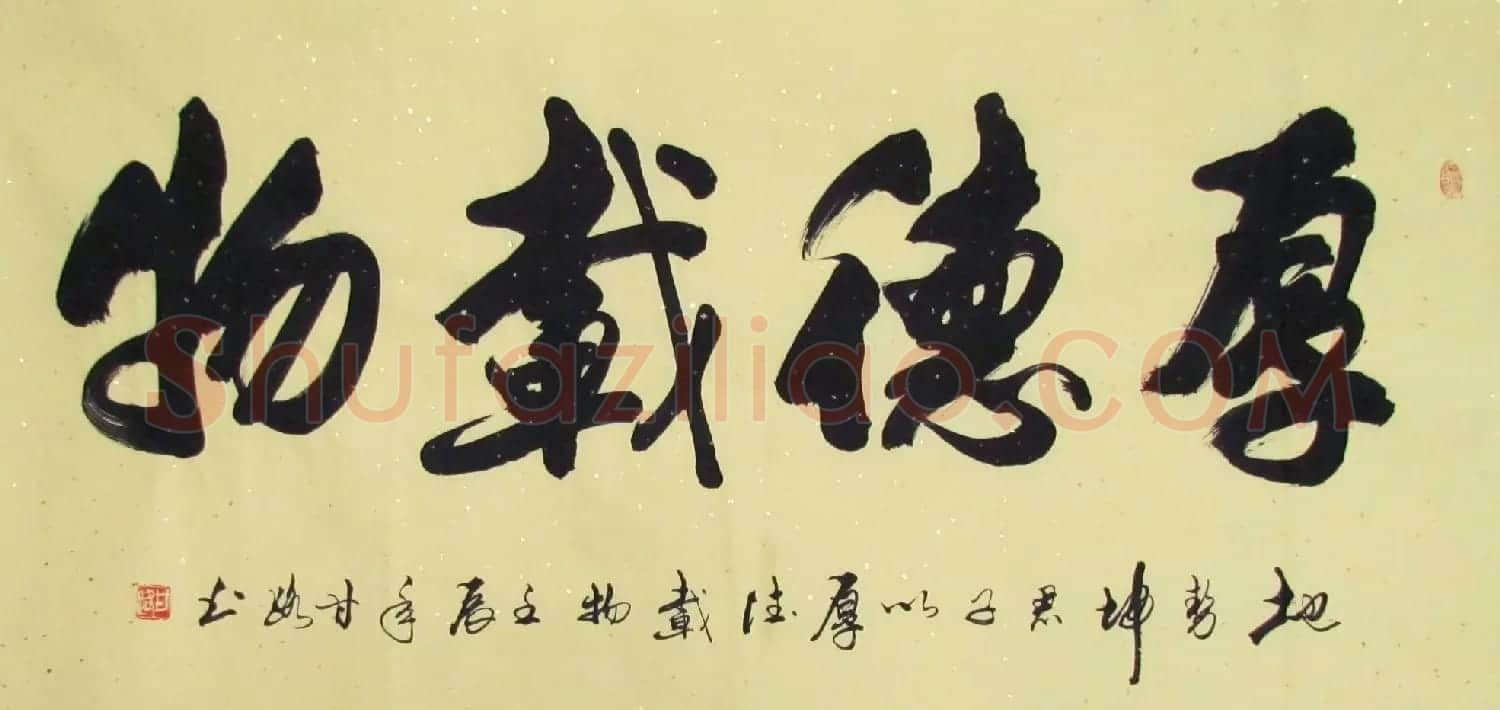 厚德载物
地势坤君子以厚德载物壬辰年甘路书
Shufaziliao.COM